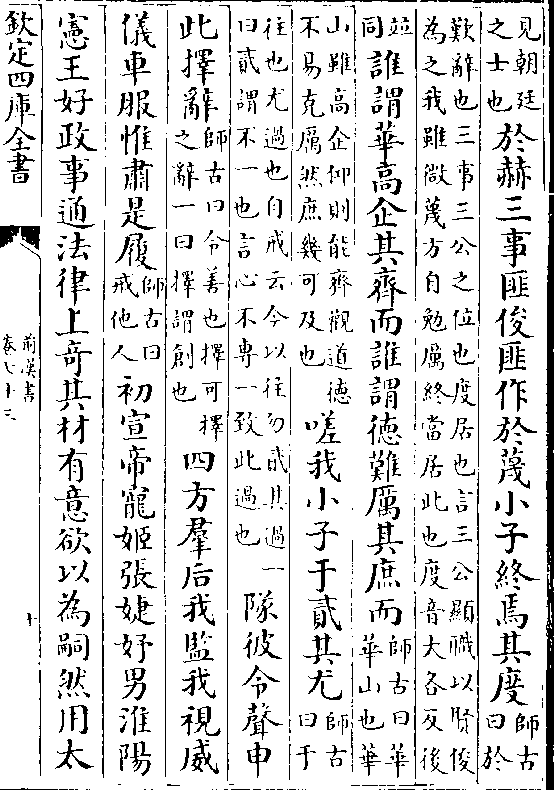 見朝廷之士也於赫三事匪俊匪作於蔑小子終焉其度師古曰於
歎辭也三事三公之位也度居也言三公顯職以賢俊為之我雖微蔑方自勉厲終當居此也度音大各反後
並同誰謂華高企其齊而誰謂德難厲其庶而師古曰華華山也華
山雖高企仰則能齊觀道德不易克厲然庶幾可及也嗟我小子于貳其尤師古曰于
往也尤過也自戒云今以往勿貳其過一曰貳謂不一也言心不專一致此過也隊彼令聲申
此擇辭師古曰令善也擇可擇之辭一曰擇謂創也四方羣后我監我視威
儀車服惟肅是履師古曰戒他人初宣帝寵姬張婕妤男淮陽
憲王好政事通法律上奇其材有意欲以為嗣然用太
欽定四庫全書
前漢書
卷七十三
十